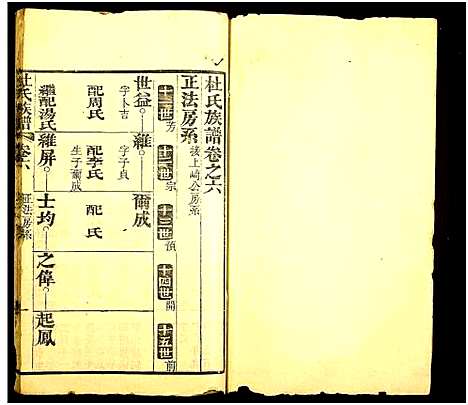 杜氏族譜卷之六
正法房系 接上崎公房系
十一世 芳
十二世 宗
十三世 預
十四世 開
十五世 前
世益 羅 爾成
字卜吉 字子貞
配周氏 配李氏 配 氏
生子爾成
繼配湯氏 羅屏 士均 之偉 起鳳
杜氏族譜 卷六 正法房系